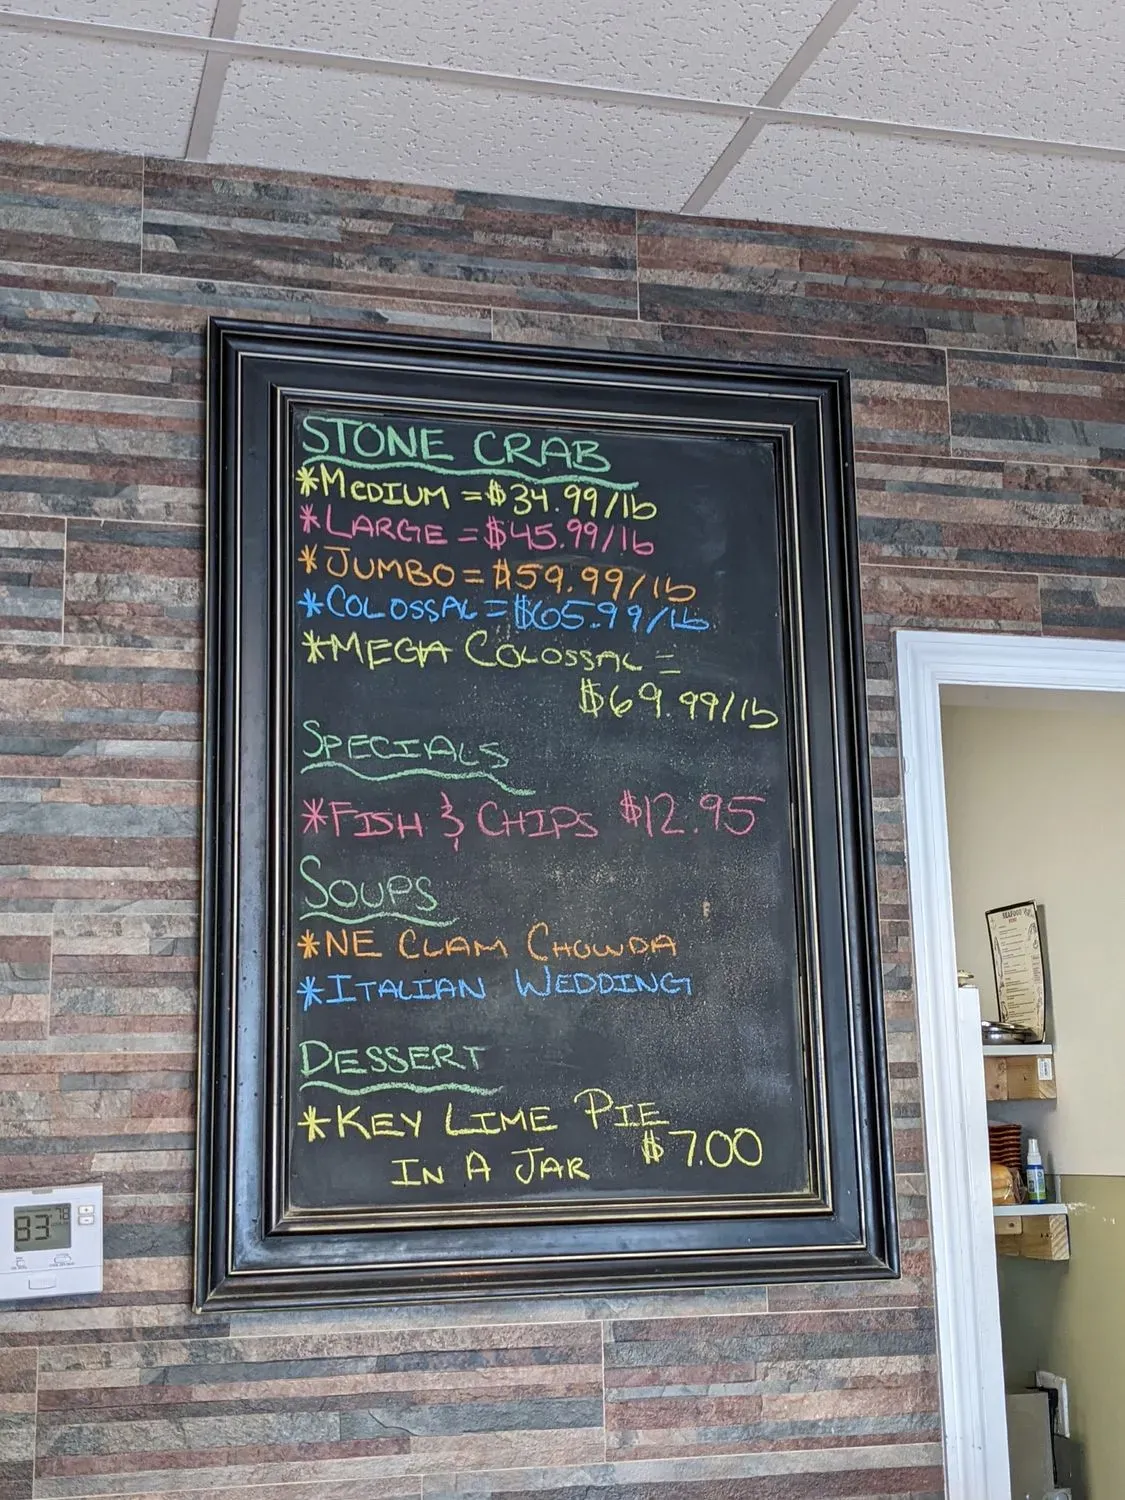 STONE CRAB
*MEDIUM = $34.99/lb
*LARGE = $45.99/lb
*JUMBO = $59.99/lb
*COLOSSAL = $65.99/lb
*MEGA COLOSSAL =
$69.99/lb
SPECIALS
*FISH & CHIPS $12.95
SOUPS
*NE CLAM CHOWDA
*ITALIAN WEDDING
DESSERT
*KEY LIME PIE
IN A JAR $7.00
83 78
SEAFOOD